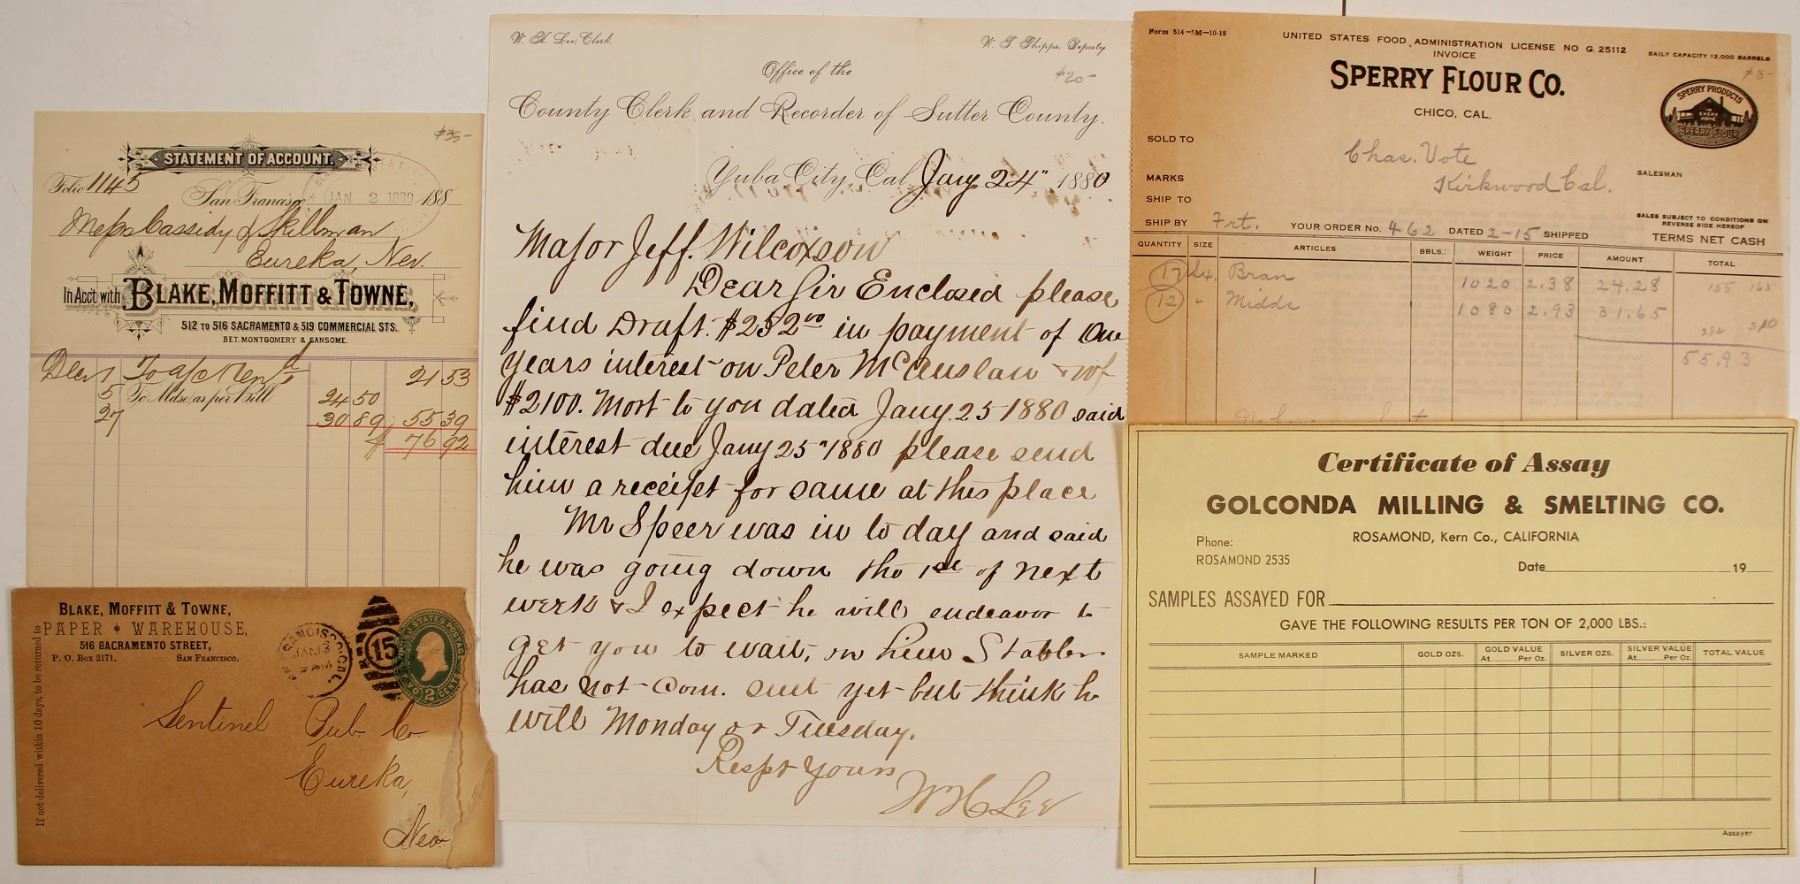 STATEMENT OF ACCOUNT.
Folio 1145
San Francisco JAN 2 188
Mess Cassidy & Skillman
Eureka, Nev.
In Acct with BLAKE, MOFFITT & TOWNE,
512 TO 516 SACRAMENTO & 519 COMMERCIAL STS.
BET. MONTGOMERY & SANSOME.
Dec 1 To a/c Rend 21 53
5 To Mdse. as per Bill 24 50
27 30 89 55 39
$ 76 92
BLAKE, MOFFITT & TOWNE,
PAPER WAREHOUSE,
516 SACRAMENTO STREET,
P. O. Box 2171. SAN FRANCISCO.
If not delivered within 10 days, to be returned to
JAN 3
15
2 CENTS
Sentinel Pub. Co
Eureka,
Nev
W. H. Lee, Clerk. W. T. Phipps, Deputy
$20-
Office of the
County Clerk and Recorder of Sutter County.
Yuba City, Cal, Jany 24" 1880
Major Jeff. Wilcoxson
Dear Sir Enclosed please
find Draft. $252 00 in payment of One
Years interest on Peter McAuslan & wf
$2100. Mort to you dated Jany. 25 1880 said
interest due Jany 25" 1880 please send
him a receipt for same at this place
Mr Speer was in to day and said
he was going down the 1st of next
week & I expect he will endeavor to
get you to wait, on him Stabler
has not com. out yet but think he
will Monday or Tuesday.
Respt Yours
W H Lee
Form 514-5M-10-18
UNITED STATES FOOD ADMINISTRATION LICENSE NO G 25112
INVOICE
DAILY CAPACITY 12,000 BARRELS
$8-
SPERRY FLOUR CO.
CHICO, CAL.
SPERRY PRODUCTS
SPERRY FLOUR
SOLD TO Chas. Vote
MARKS Kirkwood Cal. SALESMAN
SHIP TO
SHIP BY Frt. YOUR ORDER NO. 462 DATED 2-15 SHIPPED
SALES SUBJECT TO CONDITIONS ON
REVERSE SIDE HEREOF
TERMS NET CASH
QUANTITY SIZE ARTICLES BBLS. WEIGHT PRICE AMOUNT TOTAL
Bran 1020 2.38 24.28
12 " Midds 1080 2.93 31.65
55.93
Certificate of Assay
GOLCONDA MILLING & SMELTING CO.
ROSAMOND, Kern Co., CALIFORNIA
Phone:
ROSAMOND 2535
Date 19
SAMPLES ASSAYED FOR
GAVE THE FOLLOWING RESULTS PER TON OF 2,000 LBS.:
SAMPLE MARKED GOLD OZS. GOLD VALUE At Per Oz. SILVER OZS. SILVER VALUE At Per Oz. TOTAL VALUE
Assayer